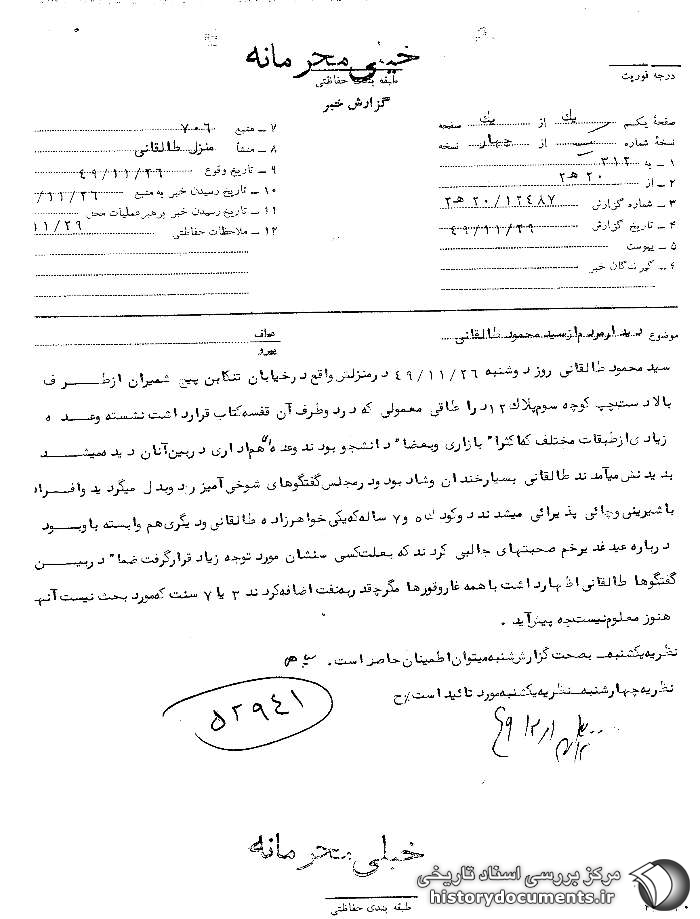 خیلی محرمانه
طبقه بندی حفاظتی
درجه فوریت
گزارش خبر
صفحهٔ یکم از یک صفحه
نسخهٔ شماره از چهار نسخه
۱ - به ۳۱۲
۲ - از ۲۰ هـ ۲
۳ - شماره گزارش ۱۲۴۸۷ / ۲۰ هـ ۲
۴ - تاریخ گزارش ۴۹/۱۱/۲۹
۵ - پیوست
۶ - گیرندگان خبر
۷ - منبع ۷۰۶
۸ - منشأ منزل طالقانی
۹ - تاریخ وقوع ۴۹/۱۱/۲۶
۱۰ - تاریخ رسیدن خبر به منبع /۱۱/۲۶
۱۱ - تاریخ رسیدن خبر برهبر عملیات محل ۱۱/۲۹
۱۲ - ملاحظات حفاظتی
موضوع دیدار مردم از سید محمود طالقانی
عطف
پیرو
سید محمود طالقانی روز دوشنبه ۴۹/۱۱/۲۶ در منزلش واقع در خیابان تنکابن پیچ شمیران از طرف
بالا دست چپ کوچه سوم پلاک ۱۲ در اطاقی معمولی که در دو طرف آن قفسه کتاب قرار داشت نشسته و عده
زیادی از طبقات مختلف که اکثرا" بازاری و بعضا" دانشجو بودند و عده ای هم اداری در بین آنان دیده میشد
بدیدنش میآمدند طالقانی بسیار خندان و شاد بود و در مجلس گفتگوهای شوخی آمیز رد و بدل میگردید و افراد
با شیرینی و چائی پذیرائی میشدند دو کودک ۵ و ۷ ساله که یکی خواهرزاده طالقانی و دیگری هم وابسته باو بود
درباره عید غدیر خم صحبتهای جالبی کردند که بعلت کمی سنشان مورد توجه زیاد قرار گرفت ضمنا" در بین
گفتگوها طالقانی اظهار داشت با همه غار و قورها مگر چقدر به نفت اضافه کردند ۳ یا ۷ سنت که مورد بحث نیست آنهم
هنوز معلوم نیست چه پیش آید .
نظریه یکشنبه - بصحت گزارش شنبه میتوان اطمینان حاصل کرد است .
نظریه چهارشنبه - نظریه یکشنبه مورد تائید است / ح
۵۲۹۴۱
خیلی محرمانه
طبقه بندی حفاظتی
مرکز بررسی اسناد تاریخی
historydocuments.ir